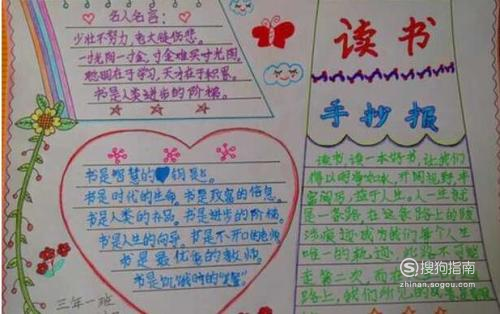 名人名言：
少壮不努力，老大徒伤悲。
一寸光阴一寸金，寸金难买寸光阴。
聪明在于学习，天才在于积累。
书是人类进步的阶梯。
读书
手抄报
书是智慧的钥匙。
书是时代的生命。书是致富的信息。
书是人类的 书是进步的阶梯。
书是人生的向导。书是不开口的老师
书是最优良的教师。
书是饥饿时的
读书，读一本好书，让我们
得以明净如水，开阔视野，丰
富阅历，益于人生。人一生就
是一条路，在这条路上的跋
涉痕迹成为我们每个人一生
唯一的轨迹，此路不可能
走第二次，而在
路上，我们所见的
三年一班
搜狗指南
zhinan.sogou.com